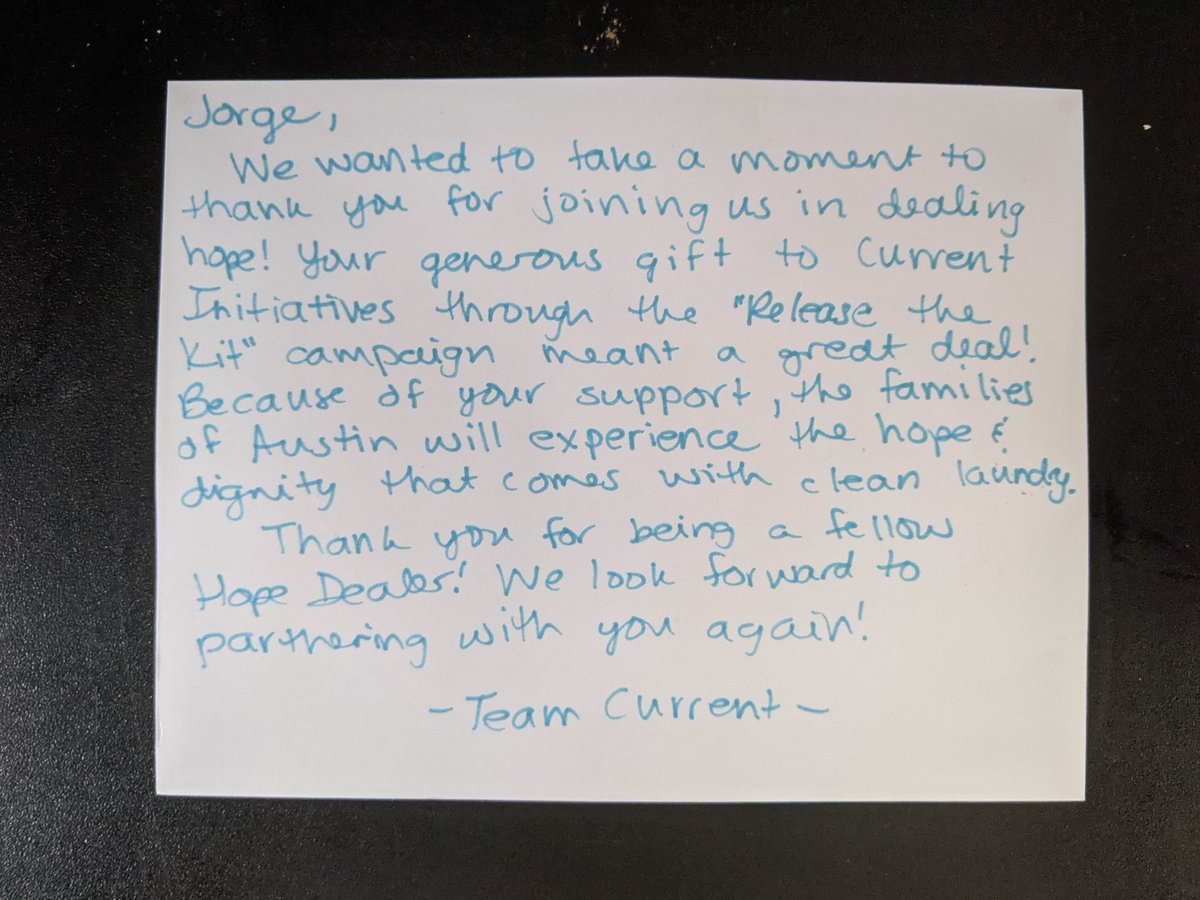 Jorge,
We wanted to take a moment to
thank you for joining us in dealing
hope! Your generous gift to Current
Initiatives through the "Release the
Kit" campaign meant a great deal!
Because of your support, the families
of Austin will experience the hope &
dignity that comes with clean laundry.
Thank you for being a fellow
Hope Dealer! We look forward to
parthering with you again!
- Team Current -